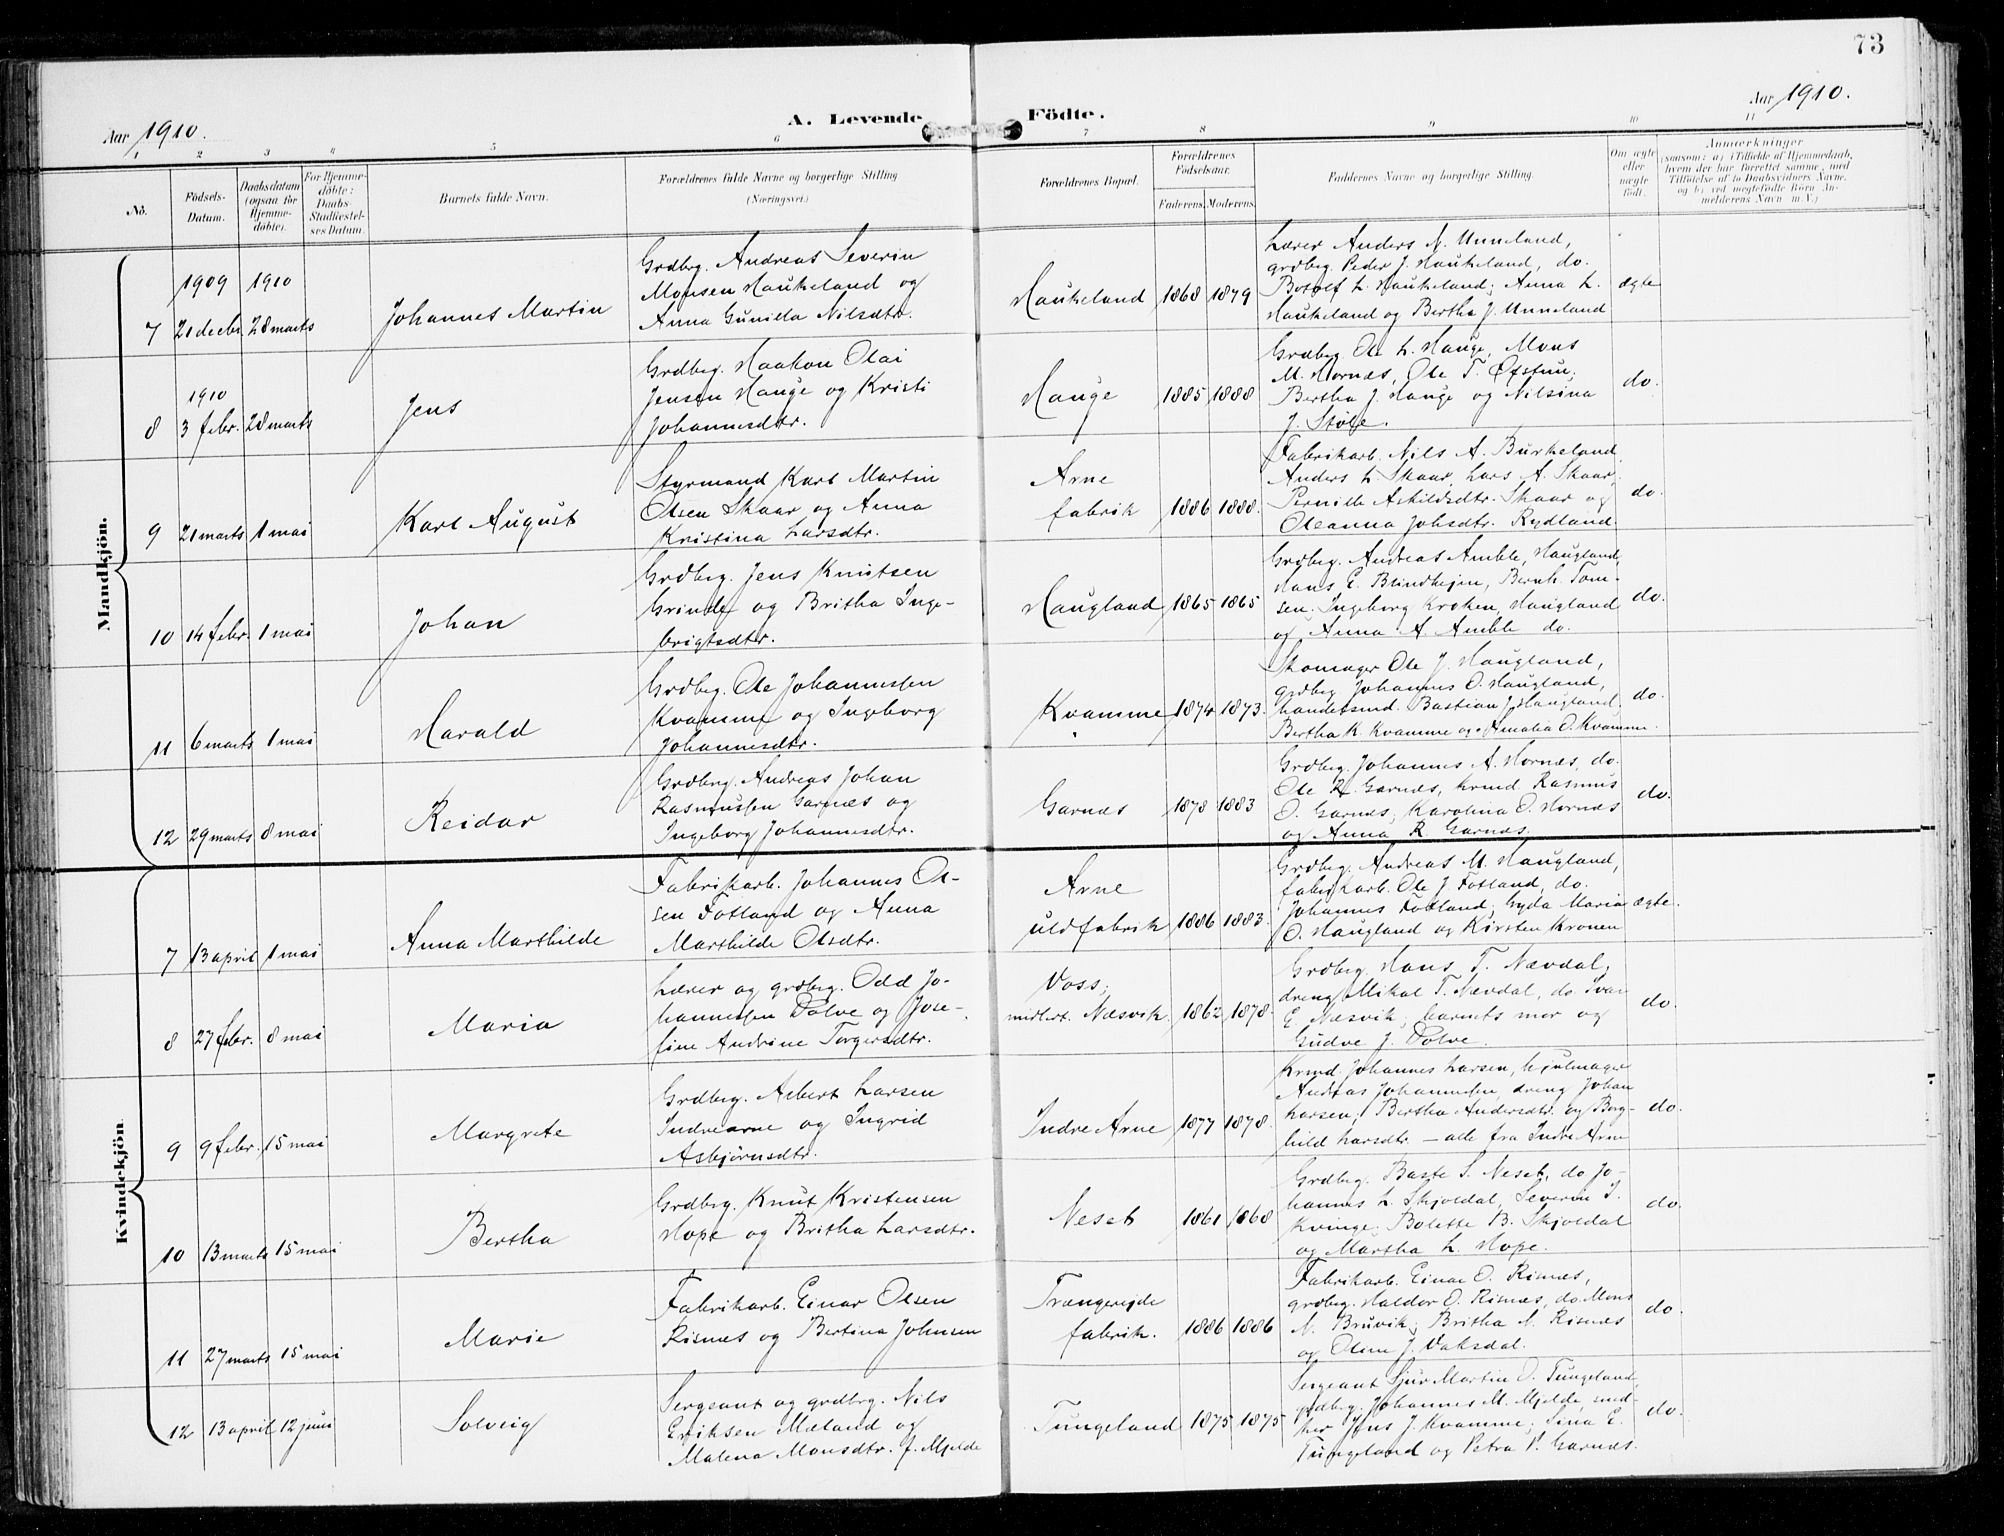 73
Aar 1910.
A. Levende Födte.
Aar 1910.
1 2 3 4 5 6 7 8 9 10 11
No.
Födsels-Datum.
Daabsdatum (ogsaa for Hjemme-döbte).
For Hjemme-döbte: Daabs-Stadfæstel-ses Datum.
Barnets fulde Navn.
Forældrenes fulde Navne og borgerlige Stilling (Næringsvei.)
Forældrenes Bopæl.
Forældrenes Födselsaar.
Faderens. Moderens.
Faddernes Navne og borgerlig Stilling.
Om ægte eller uægte födt.
Anmærkninger
(saasom: a) i Tilfælde af Hjemmedaab, hvem der har forrettet samme, med Tilföielse af to Daabsvidners Navne. og b) ved uægtefödte Börn An-melderens Navn m. V.)
Mandkjön.
7
1909
21 decbr.
1910
28 marts
Johannes Martin
Grdbrg. Andreas Severin
Monsen Haukeland og
Anna Gunilla Nilsdtr.
Haukeland
1868 1879
Lærer Anders N. Unneland,
grdbrg. Peder J. Haukeland, do.
Botolf L. Haukeland; Anna L.
Haukeland og Bertha J. Unneland
ægte
8
1910
3 febr.
28 marts
Jens
Grdbrg. Haakon Olai
Jensen Hauge og Kristi
Johannesdtr.
Hauge
1885 1888
Grdbrg. Ole L. Hauge, Mons
M. Hornæs, Ole T. Øfstun;
Bertha J. Hauge og Nilsina
J. Støle.
do.
9
21 marts
1 mai
Karl August
Styrmand Karl Martin
Olsen Skaar og Anna
Kristina Larsdtr.
Arne
fabrik
1886 1888.
Fabrikarb. Nils A. Burkeland
Anders L. Skaar, Lars A. Skaar;
Pernille Askildsdtr. Skaar og
Oleanna Johsdtr. Rydland.
do.
10
14 febr.
1 mai
Johan
Grdbrg. Jens Knutsen
Grinde og Britha Inge-
brigtsdtr.
Haugland
1865 1865
Grdbrg. Andreas Amble, Haugland,
Hans E. Blindhejen, Bernh. Tom-
sen. Ingeborg Kroken, Haugland
og Anna A. Amble do.
do.
11
6 marts
1 mai
Harald
Grdbrg. Ole Johannessen
Kvamme og Ingeborg
Johannesdtr.
Kvamme
1874 1873.
Skomager Ole J. Haugland,
grdbrg Johannes O. Haugland,
handelsmd. Bastian J. Haugland,
Bertha K. Kvamme og Amalia O. Kvamme.
do.
12
29 marts
8 mai
Reidar
Grdbrg. Andreas Johan
Rasmussen Garnæs og
Ingeborg Johannesdtr.
Garnæs
1878 1883
Grdbrg. Johannes A. Hornæs, do.
Ole R. Garnæs, krmd Rasmus
O. Garnæs; Karolina O. Hornæs
og Anna R. Garnæs.
do.
Kvindekjön.
7
13 april
1 mai
Anna Marthilde
Fabrikarb. Johannes Ol-
sen Fotland og Anna
Marthilde Olsdtr.
Arne
uldfabrik
1886 1883.
Grdbrg. Andreas M. Haugland,
fabrikarb. Ole J. Fotland, do.
Johannes Fotland; Gyda Maria
O. Haugland og Kirsten Kronen
ægte.
8
27 febr.
8 mai
Maria
Lærer og grdbrg. Odd Jo-
hannessen Dolve og Jose-
fine Andrine Torgersdtr.
Voss;
midlert. Næsvik.
1862 1878.
Grdbrg. Hans T. Nævdal,
dreng Mikal T. Nævdal, do Ivar
E. Næsvik; barnets mor og
Gudve J. Dolve.
do.
9
9 febr.
15 mai
Margrete
Grdbrg. Albert Larsen
Indrearne og Ingrid
Asbjørnsdtr.
Indre Arne
1877 1878.
Krmd. Johannes Larsen, hjulmager
Andreas Johannessen, dreng Johan
Larsen; Bertha Andersdtr. og Borg-
hild Larsdtr. – alle fra Indre Arne
do.
10
13 marts
15 mai
Bertha
Grdbrg. Knut Kristensen
Hope og Britha Larsdtr.
Neset
1861 1868
Grdbrg. Baste S. Neset, do Jo-
hannes L. Skjoldal, Severin I.
Kvinge. Bolette B. Skjoldal
og Martha L. Hope.
do.
11
27 marts
15 mai
Marie
Fabrikarb. Einar Olsen
Risnes og Bertina Johnsen
Trængereide
fabrik.
1886 1886
Fabrikarb. Einar O. Risnæs,
grdbrg. Haldor O. Risnæs, do. Mons
N. Bruvik; Britha N. Risnæs
og Oline J. Vaksdal.
do.
12
13 april
12 juni
Solveig
Sergeant og grdbrg. Nils
Eriksen Mæland og
Malena Monsdtr. f. Mjelde
Tungeland
1875 1875
Sergeant Sjur Martin O. Tungeland,
grdbrg. Johannes M. Mjelde, snid-
ker Jens J. Kvamme; Sina E.
Tungeland og Petra P. Garnæs.
do.